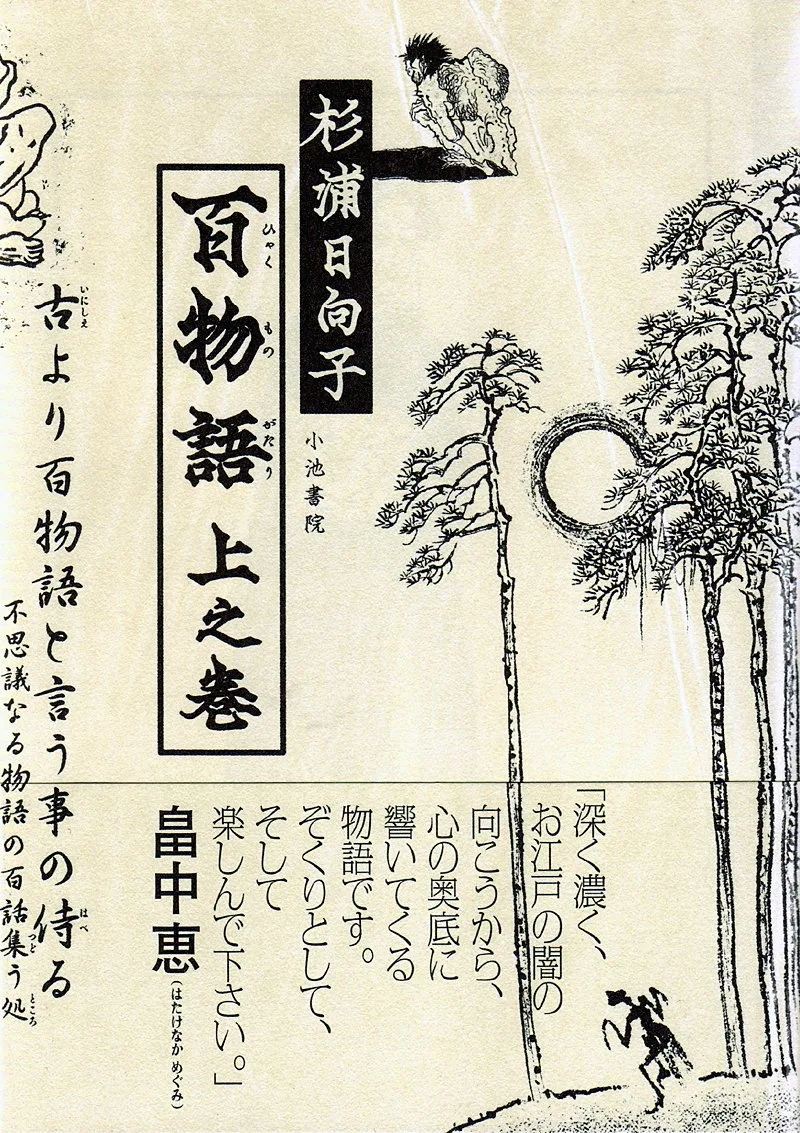 杉浦日向子
百物語 上之巻
ひゃく もの がたり
小池書院
古より百物語と言う事の侍る
いにしえ
はべ
不思議なる物語の百話集う処
つど
ところ
「深く濃く、
お江戸の闇の
向こうから、
心の奥底に
響いてくる
物語です。
ぞくりとして、
そして
楽しんで下さい。」
畠中恵
(はたけなか めぐみ)